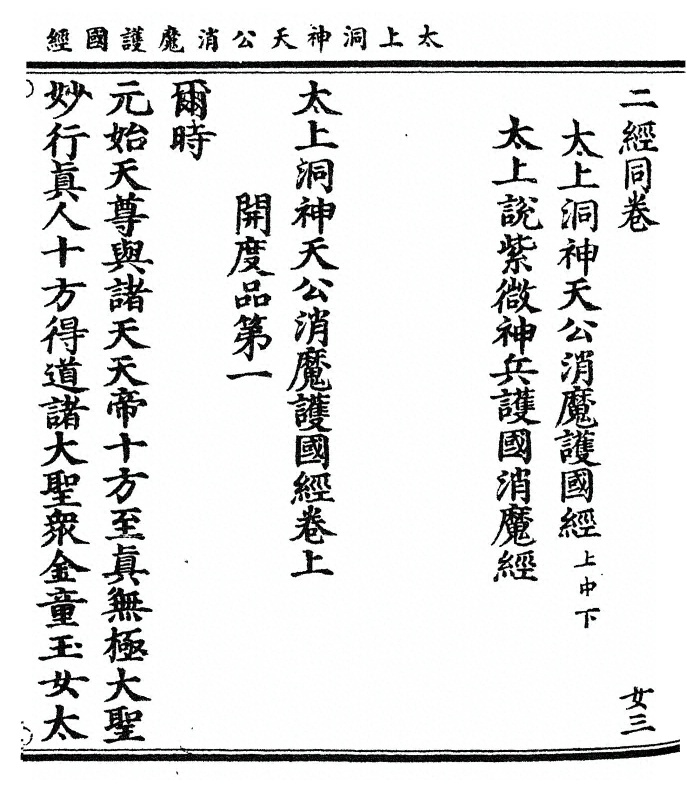 太上洞神天公消魔護國經
二經同卷
太上洞神天公消魔護國經上中下
太上說紫微神兵護國消魔經
女三
太上洞神天公消魔護國經卷上
開度品第一
爾時
元始天尊與諸天天帝十方至眞無極大聖
妙行眞人十方得道諸大聖衆金童玉女太